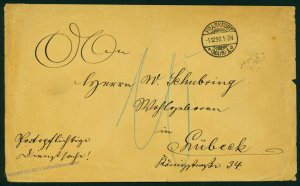 An
FRANKFURT
1.12.98.1-2N
* (MAIN) 1 d
Herrn W. Schubring
Wohlgeboren
in
Lübeck
Königstraße 34.
Portopflichtige
Dienstsache!